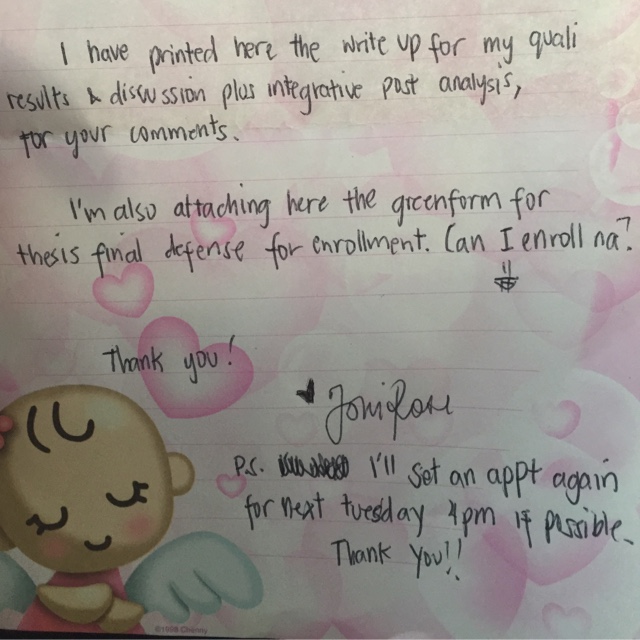 I have printed here the write up for my quali
results & discussion plus integrative past analysis,
for your comments.
I'm also attaching here the greenform for
thesis final defense for enrollment. Can I enroll na?
Thank you!
JoniRose
P.S. I'll set an appt again
for next tuesday 4pm if possible.
Thank You!!